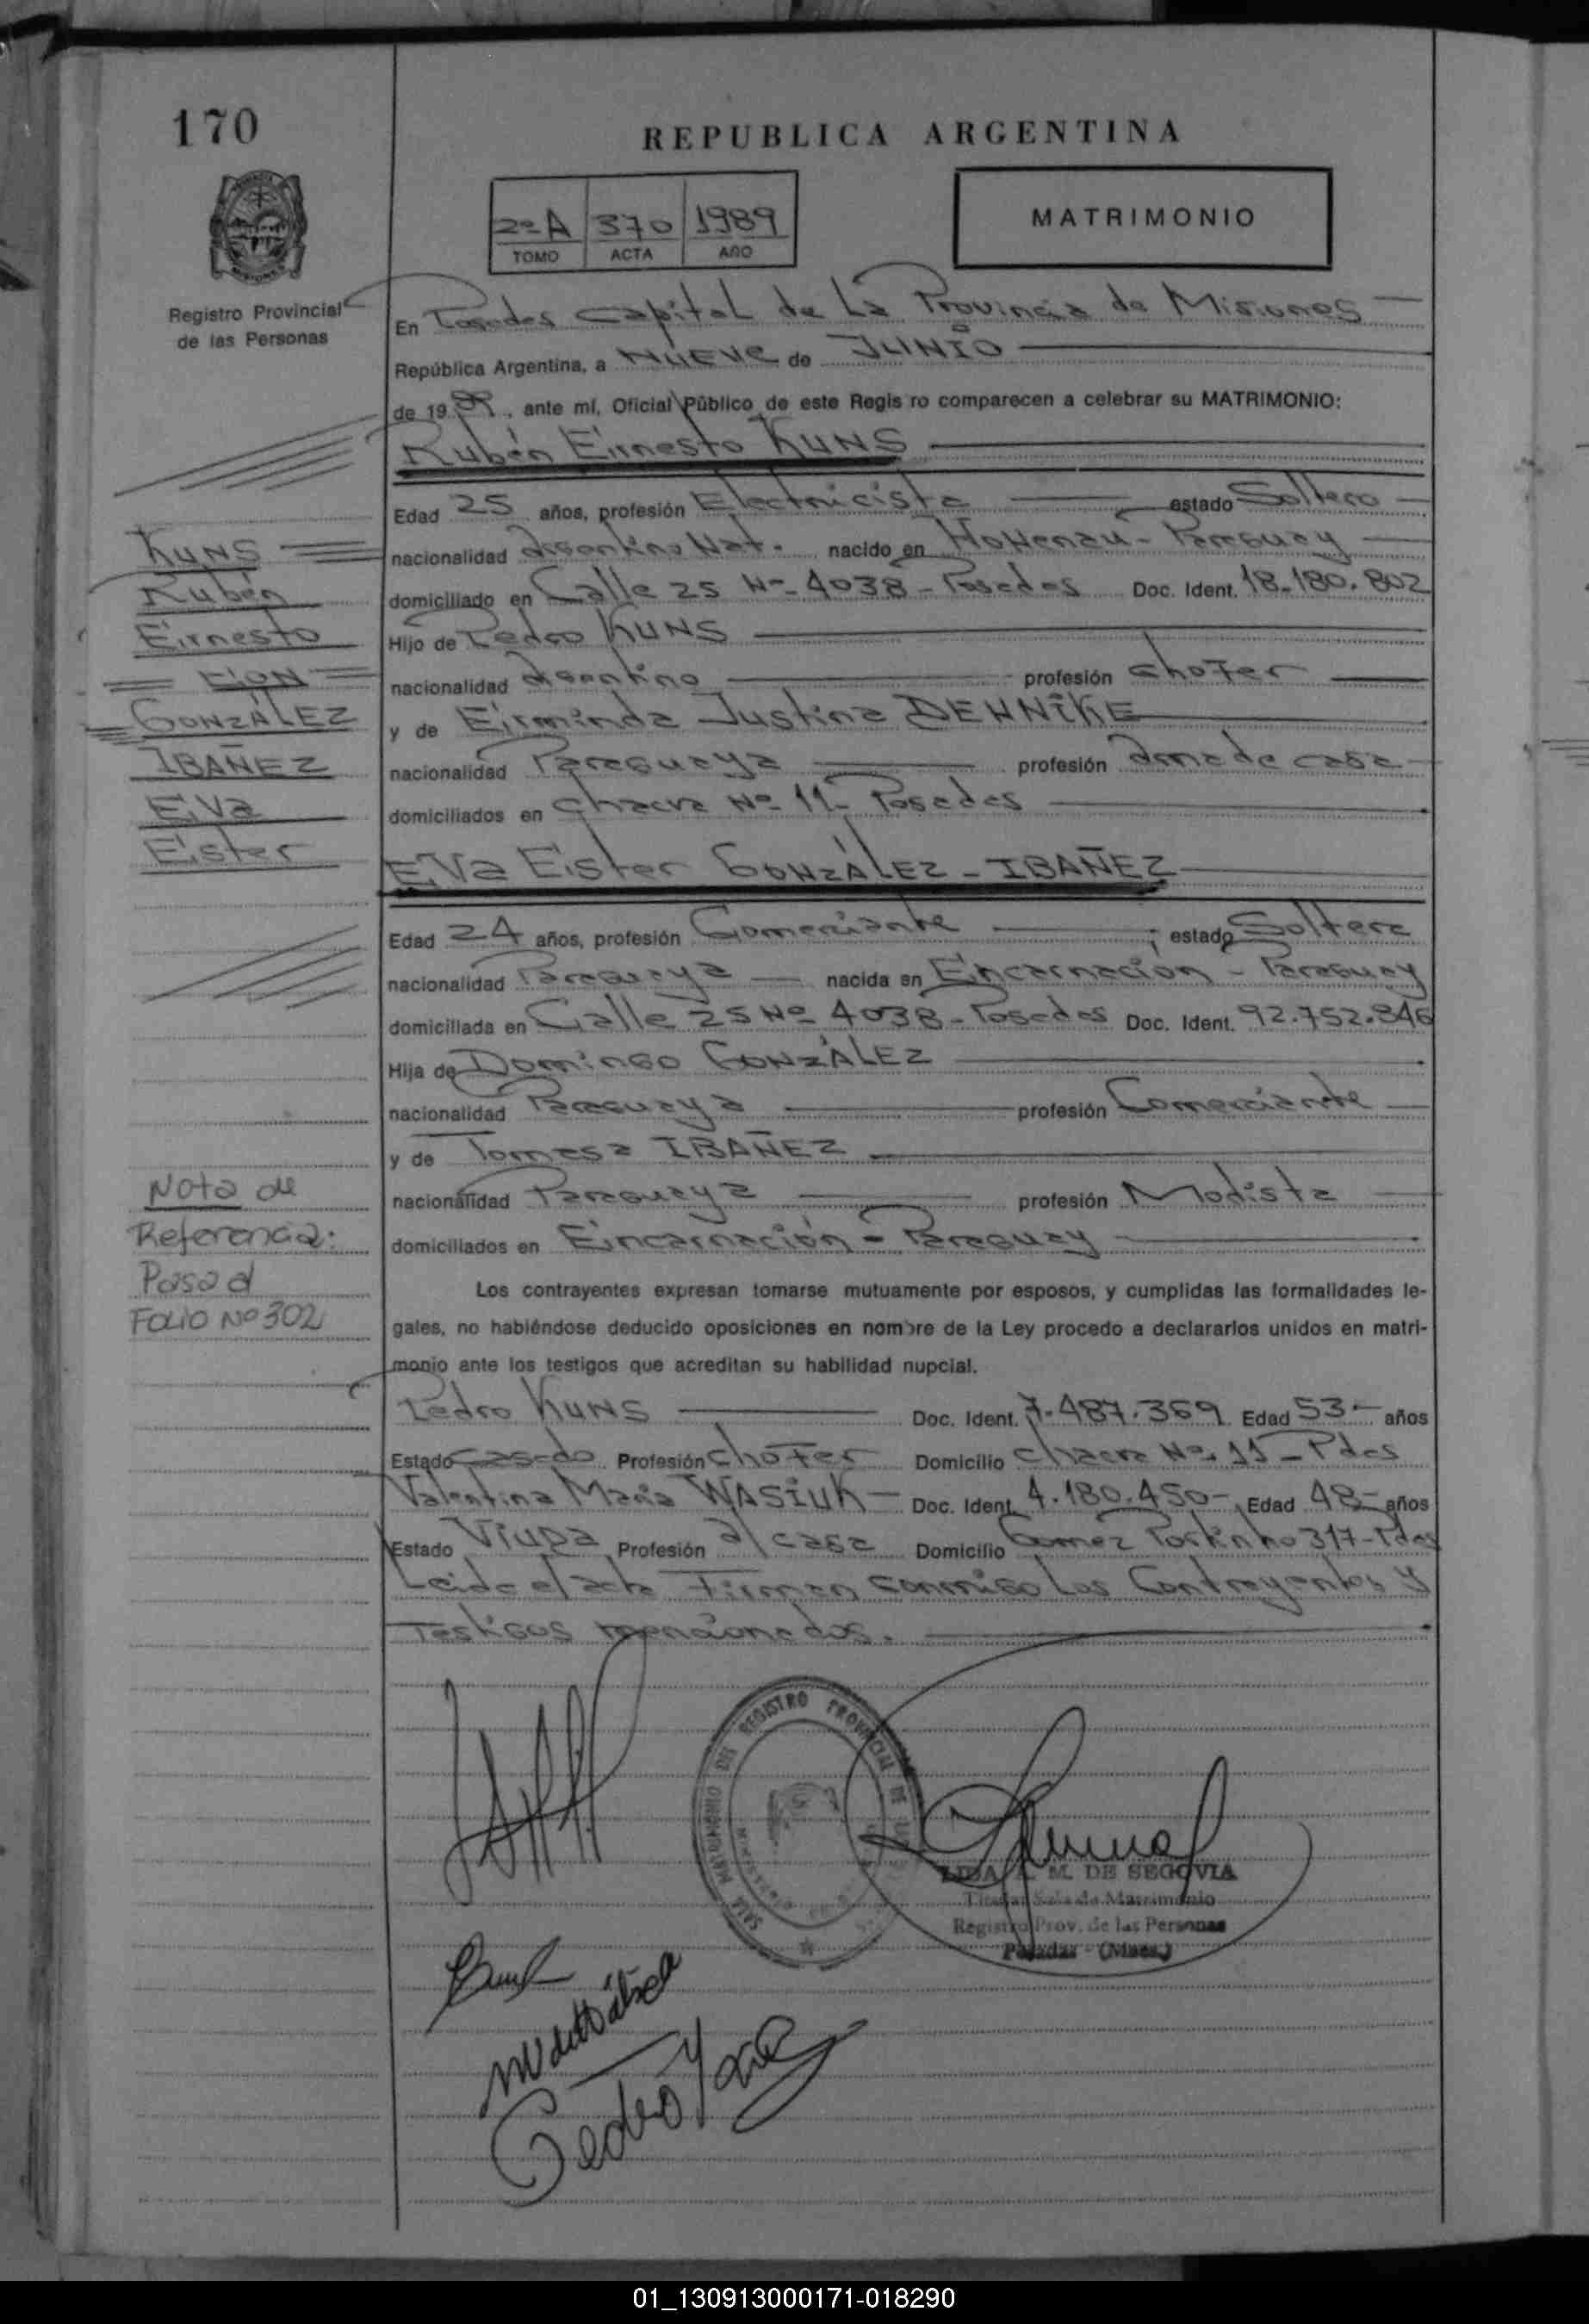 170
REPUBLICA ARGENTINA
2º A 370 1989
TOMO ACTA AÑO
MATRIMONIO
Registro Provincial
de las Personas
En Posadas Capital de La Provincia de Misiones
República Argentina, a NUEVE de JUNIO
de 19 89, ante mí, Oficial Público de este Regis ro comparecen a celebrar su MATRIMONIO:
Rubén Ernesto KUNS
Edad 25 años, profesión Electricista estado Soltero
nacionalidad Argentino Nat. nacido en Hohenau - Paraguay
domiciliado en Calle 25 Nº 4038 - Posadas Doc. Ident. 18.180.802
Hijo de Pedro KUNS
nacionalidad Argentino profesión Chofer
y de Erminda Justina DEHNIKE
nacionalidad Paraguaya profesión ama de casa
domiciliados en Chacra Nº 11 - Posadas
Eva Ester GONZÁLEZ - IBAÑEZ
Edad 24 años, profesión Comerciante ; estado Soltera
nacionalidad Paraguaya nacida en Encarnación - Paraguay
domiciliada en Calle 25 Nº 4038 - Posadas Doc. Ident. 92.752.846
Hija de Domingo GONZÁLEZ
nacionalidad Paraguaya profesión Comerciante
y de Tomasa IBAÑEZ
nacionalidad Paraguaya profesión Modista
domiciliados en Encarnación - Paraguay
Los contrayentes expresan tomarse mutuamente por esposos, y cumplidas las formalidades le-
gales, no habiéndose deducido oposiciones en nombre de la Ley procedo a declararlos unidos en matri-
monio ante los testigos que acreditan su habilidad nupcial.
Pedro KUNS Doc. Ident. 7.487.369 Edad 53 - años
Estado Casado Profesión Chofer Domicilio Chacra Nº 11 - Pdas
Valentina María WASIUK - Doc. Ident. 4.180.450 - Edad 48 - años
Estado Viuda Profesión a/ casa Domicilio Gomez Portinho 317 - Pdas
Leida el acta Firman conmigo Los Contrayentes y
Testigos mencionados.
KUNS
Rubén
Ernesto
CON
GONZÁLEZ
IBAÑEZ
Eva
Ester
Nota de
Referencia:
Pasa al
FOLIO Nº 302
SALA MATRIMONIO DEL REGISTRO PROVINCIAL DE
LIDA A. M. DE SEGOVIA
Titular Sala de Matrimonio
Registro Prov. de las Personas
Posadas - (Mnes.)
Pedro
01_130913000171-018290